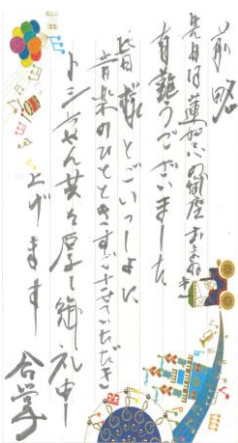 前略
先日は蓮加への御席およばれ
有難うございました
皆様とごいっしょに
音楽のひとときすごさせていただき
トシちゃん共々厚く御礼申し
上げます
合掌